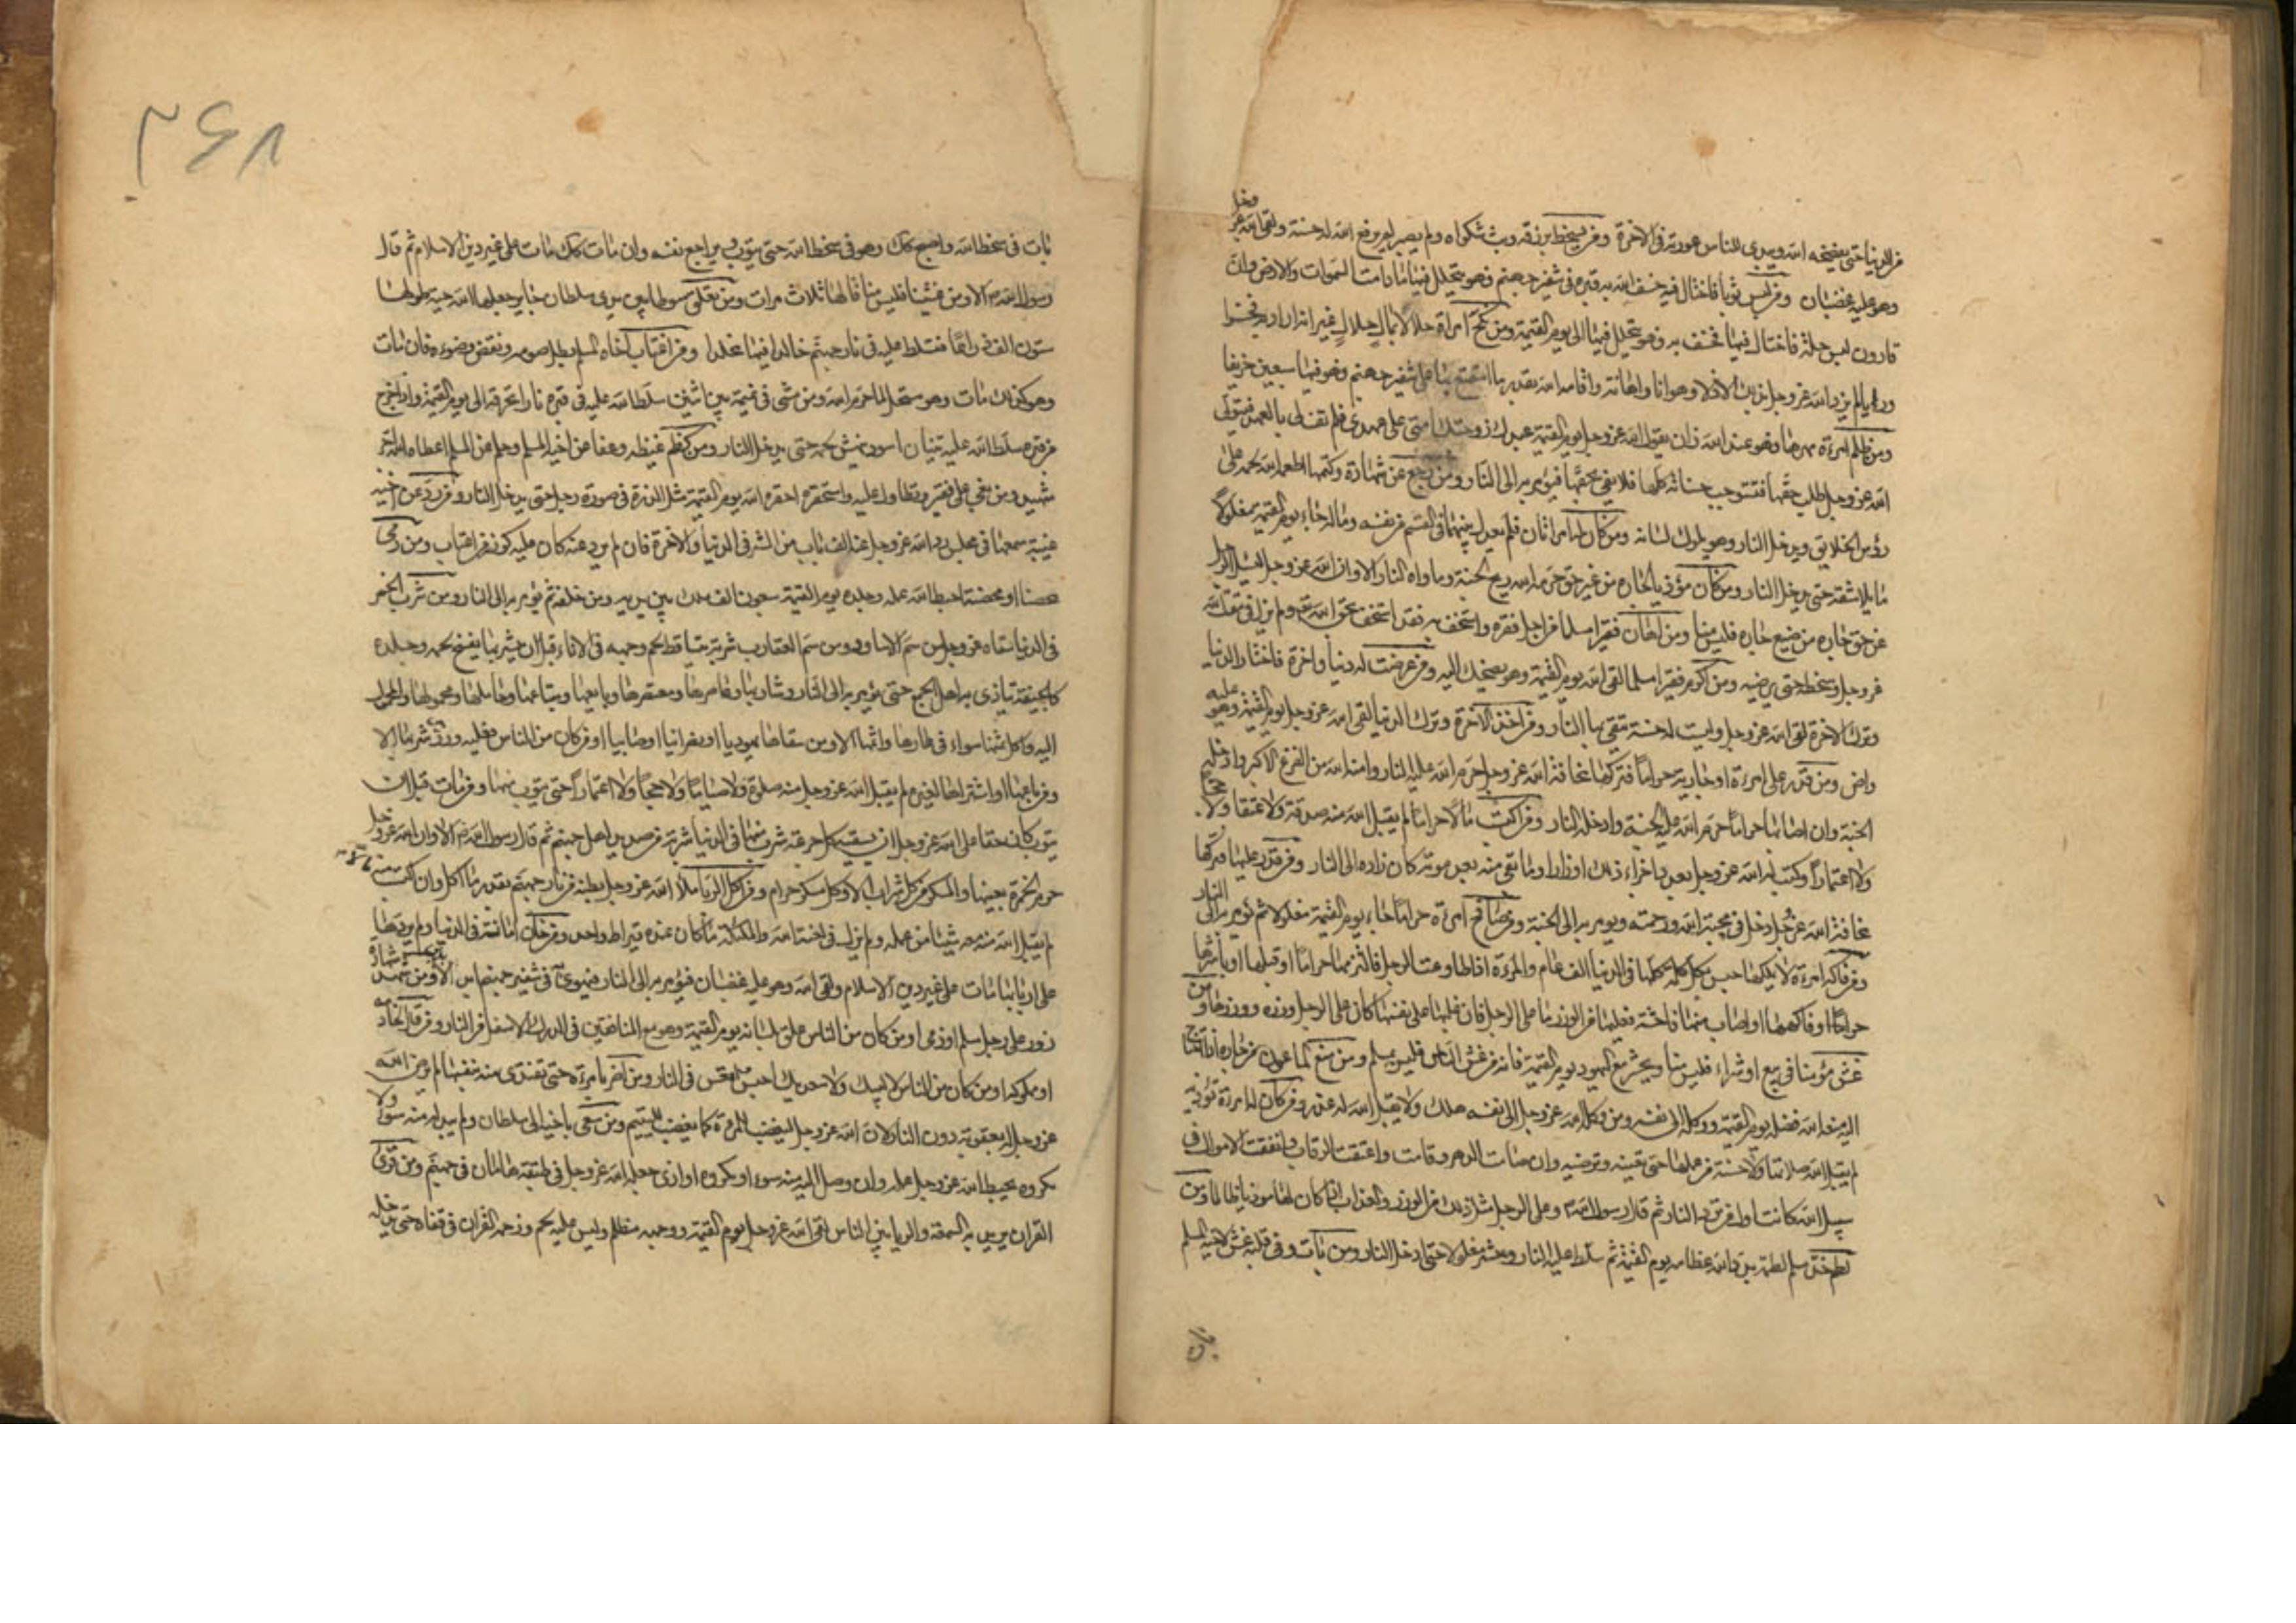 من الدنيا حتى يفضحه الله ويبدي للناس عورته في الاخرة ومن سخط برزقه وبث شكواه ولم يصبر لم يرفع الله له حسنة ولقى الله عز وجل
وهو عليه غضبان ومن لبس ثوبا فاختال فيه خسف الله به قبره في شفير جهنم وهو يتخلل فيها ما دامت السموات والارض وان
قارون لبس حلة فاختال فيها فخسف به فهو يتخلل فيها الى يوم القيمة ومن نكح امراة حلالا بمال حلال غير انه اراد به فخرا
ورياء لم يزده الله عز وجل بذلك الا ذلا وهوانا واقامه الله بقدر ما استمتع بها على شفير جهنم فهو فيها سبعين خريفا
ومن ظلم امرءة مهرها وهو عند الله زان يقول الله عز وجل يوم القيمة عبدي زوجتك امتي على عهدي فلم تف لي بالعهد فيتولى
الله عز وجل طلب حقها فتستوجب حسناته كلها فلا يفي بحقها فيؤمر به الى النار ومن رجع عن شهادة وكتمها اطعمه الله لحمه على
رؤس الخلايق ويدخل النار وهو يلوك لسانه ومن كان له امراتان فلم يعدل بينهما في القسم من نفسه وماله جاء يوم القيمة مغلولا
مايلا شقه حتى يدخل النار ومن كان مؤذيا لجاره من غير حق حرمه الله ريح الجنة وماواه النار الا وان الله عز وجل ليسئل الرجل
عن حق جاره من ضيع جاره فليس منا ومن اهان فقيرا مسلما من اجل فقره واستخف به فقد استخف بحق الله ولم يزل في مقت الله
عز وجل وسخطه حتى يرضيه ومن اكرم فقيرا مسلما لقى الله يوم القيمة وهو يضحك اليه ومن عرضت له دنيا واخرة فاختار الدنيا
وترك الاخرة لقى الله عز وجل وليست له حسنة يتقي بها النار ومن اخذ الاخرة وترك الدنيا لقى الله عز وجل يوم القيمة وهو عليه
راض ومن قدر على امرءة او جارية حراما فتركها مخافة الله عز وجل حرم الله عليه النار وامنه الله من الفزع الاكبر وادخله
الجنة وان اصابها حراما حرم الله عليه الجنة وادخله النار ومن اكتسب مالا حراما لم يقبل الله منه صدقة ولا عتقا ولا حجا
ولا اعتمارا وكتب له الله عز وجل بعدد اجزاء ذلك اوزارا وما بقي منه بعد موته كان زاده الى النار ومن قدر عليها فتركها
مخافة الله عز وجل دخل في محبة الله ورحمته ويؤمر به الى الجنة ومن صافح امرءة حراما جاء يوم القيمة مغلولا ثم يؤمر به الى النار
ومن فاكه امرءة لا يملكها حبس بكل كلمة كلمها في الدنيا الف عام والمرءة اذا طاوعت الرجل فالتزمها حراما او قبلها او باشرها
حراما او فاكهها او اصاب منها فاحشة فعليها من الوزر ما على الرجل فان غلبها على نفسها كان على الرجل وزره ووزرها ومن
غش مؤمنا في بيع او شراء فليس منا ويحشر مع اليهود يوم القيمة فانه من غش الناس فليس بمسلم ومن منع الماعون من جاره اذا احتاج
اليه منعه الله فضله يوم القيمة ووكله الى نفسه ومن وكله الله عز وجل الى نفسه هلك ولا يقبل الله له عذر ومن كان له امرءة تؤذيه
لم يقبل الله صلاتها ولا حسنة من عملها حتى تعينه وترضيه وان صامت الدهر وقامت واعتقت الرقاب وانفقت الاموال في
سبيل الله كانت اول من ترد النار ثم قال رسول الله وعلى الرجل مثل ذلك من الوزر والعذاب اذا كان لها موذيا ظالما ومن
لطم خد مسلم لطمة بدد الله عظامه يوم القيمة ثم سلط عليه النار وحشر مغلولا حتى يدخل النار ومن بات وفي قلبه غش لاخيه المسلم
٣۶٨
بات في سخط الله واصبح كذلك وهو في سخط الله حتى يتوب ويراجع نفسه وان مات كذلك مات على غير دين الاسلام ثم قال
رسول الله الا ومن غشنا فليس منا قالها ثلاث مرات ومن علق سوطا بين يدي سلطان جاير جعلها الله حية طولها
ستون الف ذراعا فتسلط عليه في نار جهنم خالدا فيها مخلدا ومن اغتاب اخاه المسلم بطل صومه ونقض وضوءه فان مات
وهو كذلك مات وهو مستحل لما حرم الله ومن مشى في نميمة بين اثنين سلط الله عليه في قبره نارا تحرقه الى يوم القيمة واذا خرج
من قبره سلط الله عليه تنينا اسود ينهش لحمه حتى يدخل النار ومن كظم غيظه وعفا عن اخيه المسلم وحلم عن المسلم اعطاه الله اجر
شهيد ومن بغى على فقير وتطاول عليه واستحقره احقره الله يوم القيمة مثل الذرة في صورة رجل حتى يدخل النار ومن رد عن اخيه
غيبة سمعها في مجلس رد الله عز وجل عنه الف باب من الشر في الدنيا والاخرة فان لم يرد عنه كان عليه كوزر من اغتاب ومن رمى
محصنا او محصنة احبط الله عمله وجلده يوم القيمة سبعون الف ملك من بين يديه ومن خلفه ثم يؤمر به الى النار ومن شرب الخمر
في الدنيا سقاه الله عز وجل من سم الاساود ومن سم العقارب شربة يتساقط لحم وجهه في الاناء قبل ان يشربها يفسخ لحمه وجلده
كالجيفة يتاذى به اهل الجمع حتى يؤمر به الى النار وشاربها وعاصرها ومعتصرها وبايعها ومبتاعها وحاملها والمحمولة
اليه واكل ثمنها سواء في عارها واثمها الا ومن سقاها يهوديا او نصرانيا او صابيا او من كان من الناس فعليه كوزر شربها الا
ومن باعها او اشتراها لغيره لم يقبل الله عز وجل منه صلوة ولا صياما ولا حجا ولا اعتمارا حتى يتوب منها ومن مات قبل ان
يتوب كان حقا على الله عز وجل ان يسقيه بكل جرعة شرب منها في الدنيا شربة من صديد اهل جهنم ثم قال رسول الله الا وان الله عز وجل
حرم الخمرة بعينها والمسكر من كل شراب الا وكل مسكر حرام ومن اكل الربا ملأ الله عز وجل بطنه من نار جهنم بقدر ما اكل وان كسب منه مالا
لم يقبل الله منه شيئا من عمله ولم يزل في لعنة الله والملائكة ما كان عنده قيراط واحد ومن خان امانة في الدنيا ولم يردها
على اربابها مات على غير دين الاسلام ولقى الله وهو عليه غضبان فيؤمر به الى النار فيهوى به في شفير جهنم ابد الا ومن شهد شهادة
زور على رجل مسلم او ذمي او من كان من الناس علق بلسانه يوم القيمة وهو مع المنافقين في الدرك الاسفل من النار ومن قال لخادمه
او مملوكه او من كان من الناس لا لبيك ولا سعديك في النار ومن اضر بامرءة حتى تفتدي منه نفسها لم يرض الله
عز وجل له بعقوبة دون النار لان الله عز وجل ليغضب للمرءة كما يغضب لليتيم ومن سعى باخيه الى سلطان ولم يبد له منه سوء ولا
مكروه يحبط الله عز وجل عمله وان وصل اليه منه سوء او مكروه او اذى جعله الله عز وجل في طبقة هامان في جهنم ومن قرئ
القران يريد به السمعة والريا بين الناس لقى الله عز وجل يوم القيمة ووجهه مظلم وليس عليه لحم وزجه القران في قفاه حتى يدخله